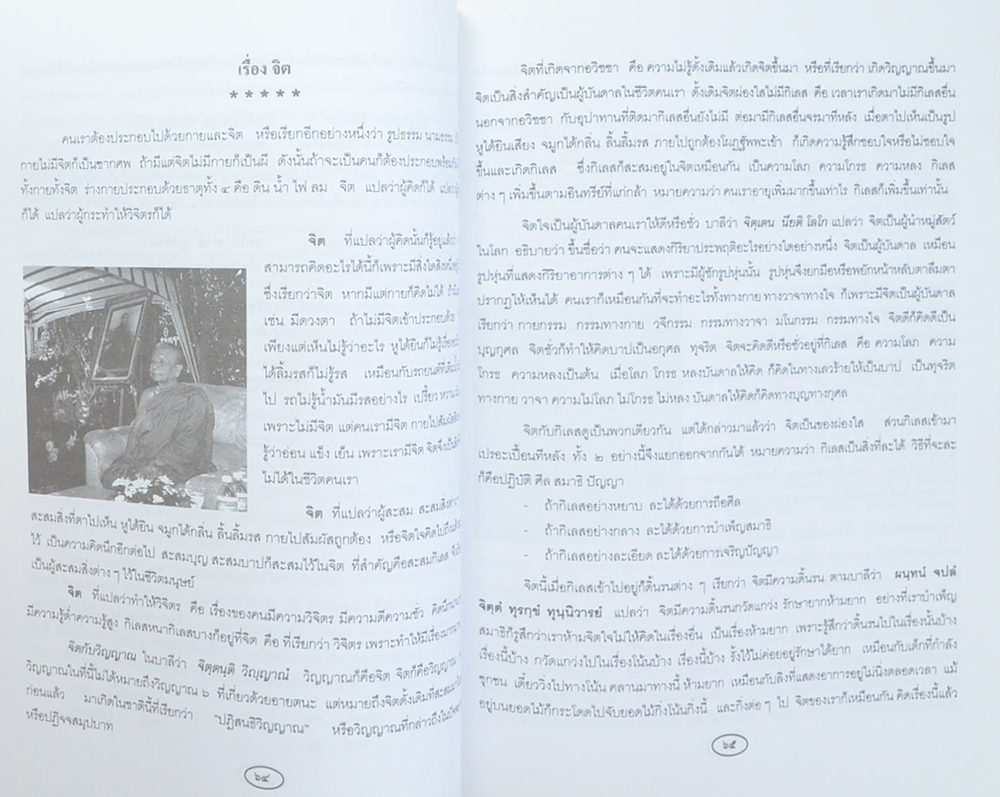 เรื่อง จิต
* * * * *
คนเราต้องประกอบไปด้วยกายและจิต หรือเรียกอีกอย่างหนึ่งว่า รูปธรรม นามธรรม
กายไม่มีจิตก็เป็นซากศพ ถ้ามีแต่จิตไม่มีกายก็เป็นผี ดังนั้นถ้าจะเป็นคนก็ต้องประกอบพร้อม
ทั้งกายทั้งจิต ร่างกายประกอบด้วยธาตุทั้ง ๔ คือ ดิน น้ำ ไฟ ลม จิต แปลว่าผู้คิดก็ได้
ก็ได้ แปลว่าผู้กระทำให้วิจิตรก็ได้
จิต ที่แปลว่าผู้คิดนั้นก็รู้อยู่แล้ว
สามารถคิดอะไรได้นี้ก็เพราะมีสิ่งใดสิ่งหนึ่ง
ซึ่งเรียกว่าจิต หากมีแต่กายก็คิดไม่ได้
เช่น มีดวงตา ถ้าไม่มีจิตเข้าประกอบด้วย
เพียงแต่เห็นไม่รู้ว่าอะไร หูได้ยินก็ไม่รู้เรื่อง
ได้ลิ้มรสก็ไม่รู้รส เหมือนกับรถยนต์ที่เติมน้ำ
ไป รถไม่รู้น้ำมันมีรสอย่างไร เปรี้ยว หวาน
เพราะไม่มีจิต แต่คนเรามีจิต กายไปสัมผัส
รู้ว่าอ่อน แข็ง เย็น เพราะเรามีจิต จิตจึงเป็น
ไม่ได้ในชีวิตคนเรา
จิต ที่แปลว่าผู้สะสม สะสมสิ่งต่าง ๆ
สะสมสิ่งที่ตาไปเห็น หูได้ยิน จมูกได้กลิ่น ลิ้นลิ้มรส กายไปสัมผัสถูกต้อง หรือจิตใจคิดไปถึง
ไว้ เป็นความคิดนึกอีกต่อไป สะสมบุญ สะสมบาปก็สะสมไว้ในจิต ที่สำคัญคือสะสมกิเลส
เป็นผู้สะสมสิ่งต่าง ๆ ไว้ในชีวิตมนุษย์
จิต ที่แปลว่าทำให้วิจิตร คือ เรื่องของคนมีความวิจิตร มีความดีความชั่ว
มีความรู้ต่ำความรู้สูง กิเลสหนากิเลสบางก็อยู่ที่จิต คือ ที่เรียกว่า วิจิตร เพราะทำให้มีเรื่อง
จิตกับวิญญาณ ในบาลีว่า จิตฺตนฺติ วิญฺญาณํ วิญญาณก็คือจิต จิตก็คือวิญญาณ
วิญญาณในที่นี้ไม่ได้หมายถึงวิญญาณ ๖ ที่เกี่ยวด้วยอายตนะ แต่หมายถึงจิตดั้งเดิมที่สะสม
ก่อนแล้ว มาเกิดในชาตินี้ที่เรียกว่า "ปฏิสนธิวิญญาณ" หรือวิญญาณที่กล่าวถึงใน
หรือปฏิจจสมุปบาท
๖๔
จิตที่เกิดจากอวิชชา คือ ความไม่รู้ดั้งเดิมแล้วเกิดจิตขึ้นมา หรือที่เรียกว่า เกิดวิญญาณขึ้นมา
จิตเป็นสิ่งสำคัญเป็นผู้บันดาลในชีวิตคนเรา ดั้งเดิมจิตผ่องใสไม่มีกิเลส คือ เวลาเราเกิดมาไม่มีกิเลสอื่น
นอกจากอวิชชา กับอุปาทานที่ติดมากิเลสอื่นยังไม่มี ต่อมามีกิเลสอื่นจรมาทีหลัง เมื่อตาไปเห็นเป็นรูป
หูได้ยินเสียง จมูกได้กลิ่น ลิ้นลิ้มรส กายไปถูกต้องโผฏฐัพพะเข้า ก็เกิดความรู้สึกชอบใจหรือไม่ชอบใจ
ขึ้นและเกิดกิเลส ซึ่งกิเลสก็สะสมอยู่ในจิตเหมือนกัน เป็นความโลภ ความโกรธ ความหลง กิเลส
ต่าง ๆ เพิ่มขึ้นตามอินทรีย์ที่แก่กล้า หมายความว่า คนเราอายุเพิ่มมากขึ้นเท่าไร กิเลสก็เพิ่มขึ้นเท่านั้น
จิตใจเป็นผู้บันดาลคนเราให้ดีหรือชั่ว บาลีว่า จิตฺเตน นียติ โลโก แปลว่า จิตเป็นผู้นำหมู่สัตว์
ในโลก อธิบายว่า ขึ้นชื่อว่า คนจะแสดงกิริยาประพฤติอะไรอย่างใดอย่างหนึ่ง จิตเป็นผู้บันดาล เหมือน
รูปหุ่นที่แสดงกิริยาอาการต่าง ๆ ได้ เพราะมีผู้ชักรูปหุ่นนั้น รูปหุ่นจึงยกมือหรือพยักหน้าหลับตาลืมตา
ปรากฏให้เห็นได้ คนเราก็เหมือนกันที่จะทำอะไรทั้งทางกาย ทางวาจาทางใจ ก็เพราะมีจิตเป็นผู้บันดาล
เรียกว่า กายกรรม กรรมทางกาย วจีกรรม กรรมทางวาจา มโนกรรม กรรมทางใจ จิตดีก็คิดดีเป็น
บุญกุศล จิตชั่วก็ทำให้คิดบาปเป็นอกุศล ทุจริต จิตจะคิดดีหรือชั่วอยู่ที่กิเลส คือ ความโลภ ความ
โกรธ ความหลงเป็นต้น เมื่อโลภ โกรธ หลงบันดาลให้คิด ก็คิดในทางเลวร้ายให้เป็นบาป เป็นทุจริต
ทางกาย วาจา ความไม่โลภ ไม่โกรธ ไม่หลง บันดาลให้คิดก็คิดทางบุญทางกุศล
จิตกับกิเลสดูเป็นพวกเดียวกัน แต่ได้กล่าวมาแล้วว่า จิตเป็นของผ่องใส ส่วนกิเลสเข้ามา
เปรอะเปื้อนทีหลัง ทั้ง ๒ อย่างนี้จึงแยกออกจากกันได้ หมายความว่า กิเลสเป็นสิ่งที่ละได้ วิธีที่จะละ
ก็คือปฏิบัติ ศีล สมาธิ ปัญญา
- ถ้ากิเลสอย่างหยาบ ละได้ด้วยการถือศีล
- ถ้ากิเลสอย่างกลาง ละได้ด้วยการบำเพ็ญสมาธิ
- ถ้ากิเลสอย่างละเอียด ละได้ด้วยการเจริญปัญญา
จิตนี้เมื่อกิเลสเข้าไปอยู่ก็ดิ้นรนต่าง ๆ เรียกว่า จิตมีความดิ้นรน ตามบาลีว่า ผนฺทนํ จปลํ
จิตฺตํ ทุรกฺขํ ทุนฺนิวารยํ แปลว่า จิตมีความดิ้นรนกวัดแกว่ง รักษายากห้ามยาก อย่างที่เราบำเพ็ญ
สมาธิก็รู้สึกว่าเราห้ามจิตใจไม่ให้คิดในเรื่องอื่น เป็นเรื่องห้ามยาก เพราะรู้สึกว่าดิ้นรนไปในเรื่องนั้นบ้าง
เรื่องนี้บ้าง กวัดแกว่งไปในเรื่องโน้นบ้าง เรื่องนี้บ้าง รั้งไว้ไม่ค่อยอยู่รักษาได้ยาก เหมือนกับเด็กที่กำลัง
ซุกซน เดี๋ยววิ่งไปทางโน้น คลานมาทางนี้ ห้ามยาก เหมือนกับลิงที่แสดงอาการอยู่ไม่นิ่งตลอดเวลา แม้
อยู่บนยอดไม้ก็กระโดดไปจับยอดไม้กิ่งโน้นกิ่งนี้ และกิ่งต่อ ๆ ไป จิตของเราก็เหมือนกัน คิดเรื่องนี้แล้ว
๖๕